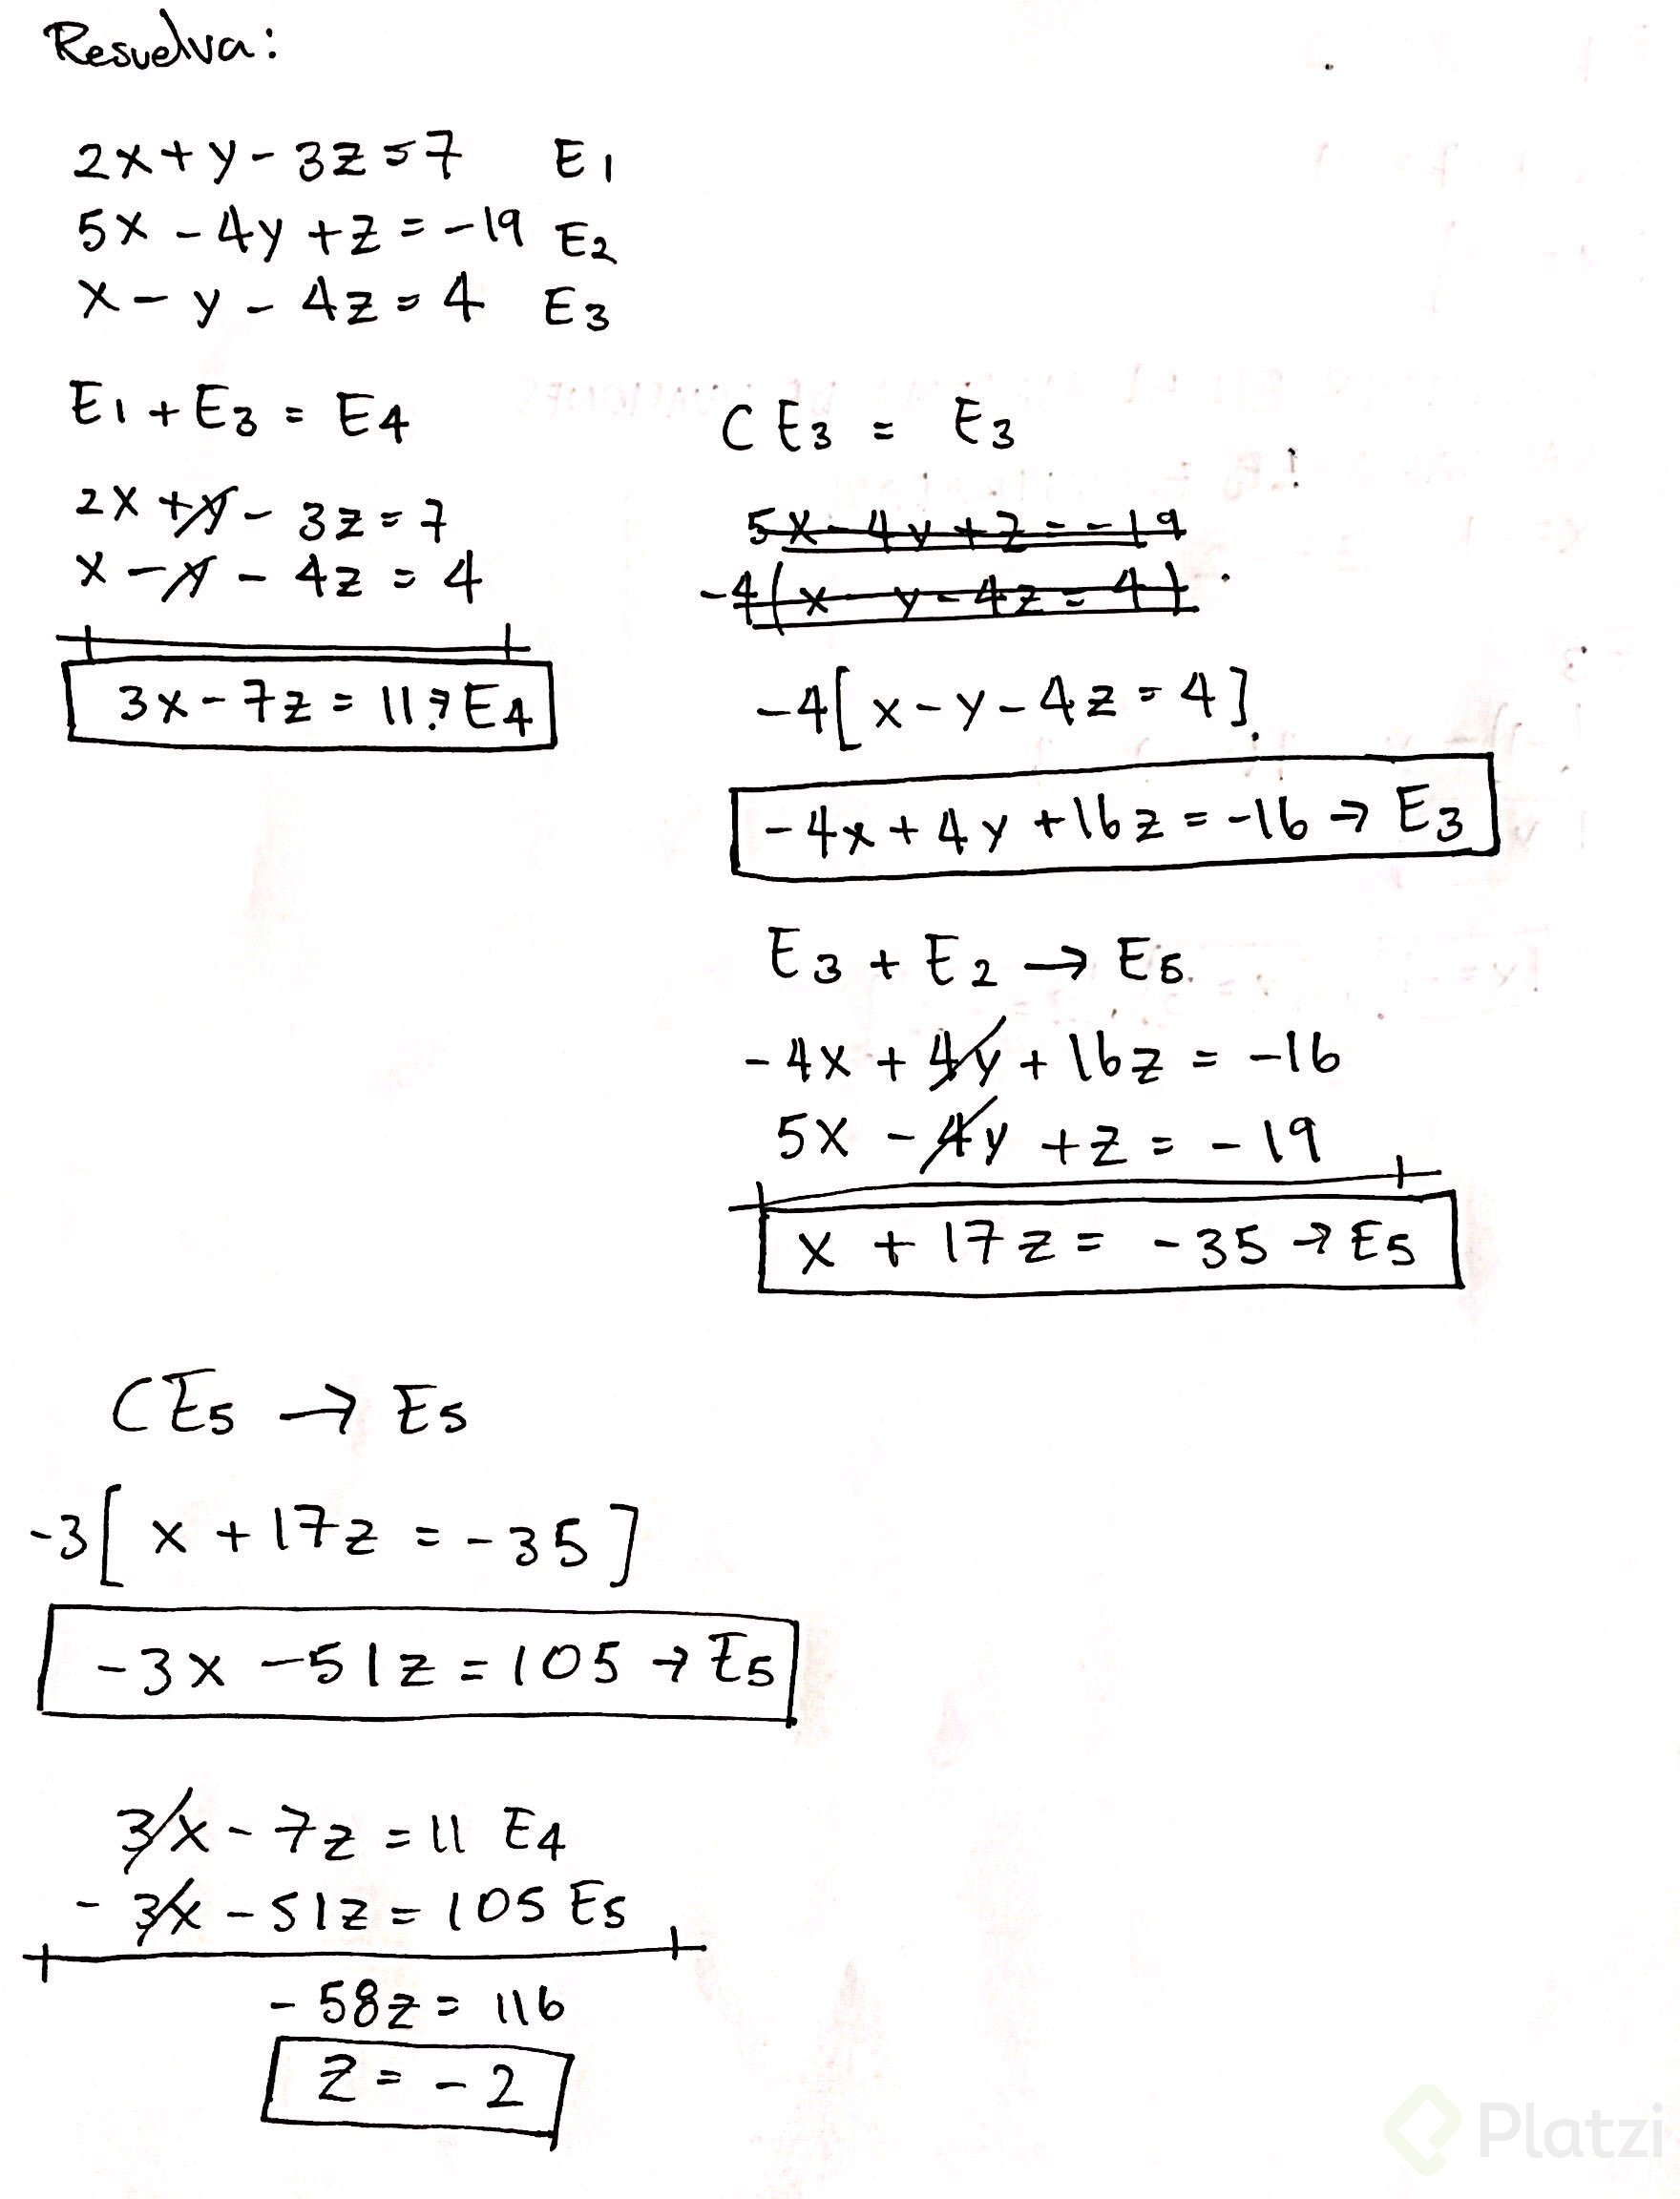 Resuelva:
2x+y-3z=7 E1
5x-4y+z=-19 E2
x-y-4z=4 E3
E1+E3=E4
2x+y-3z=7
x-y-4z=4
3x-7z=11→E4
CE3 = E3
5x-4y+z=-19
-4(x-y-4z=4)
-4[x-y-4z=4]
-4x+4y+16z=-16→E3
E3+E2→E5
-4x+4y+16z=-16
5x-4y+z=-19
x+17z=-35→E5
CE5→E5
-3[x+17z=-35]
-3x-51z=105→E5
3x-7z=11 E4
-3x-51z=105 E5
-58z=116
z=-2
Platzi